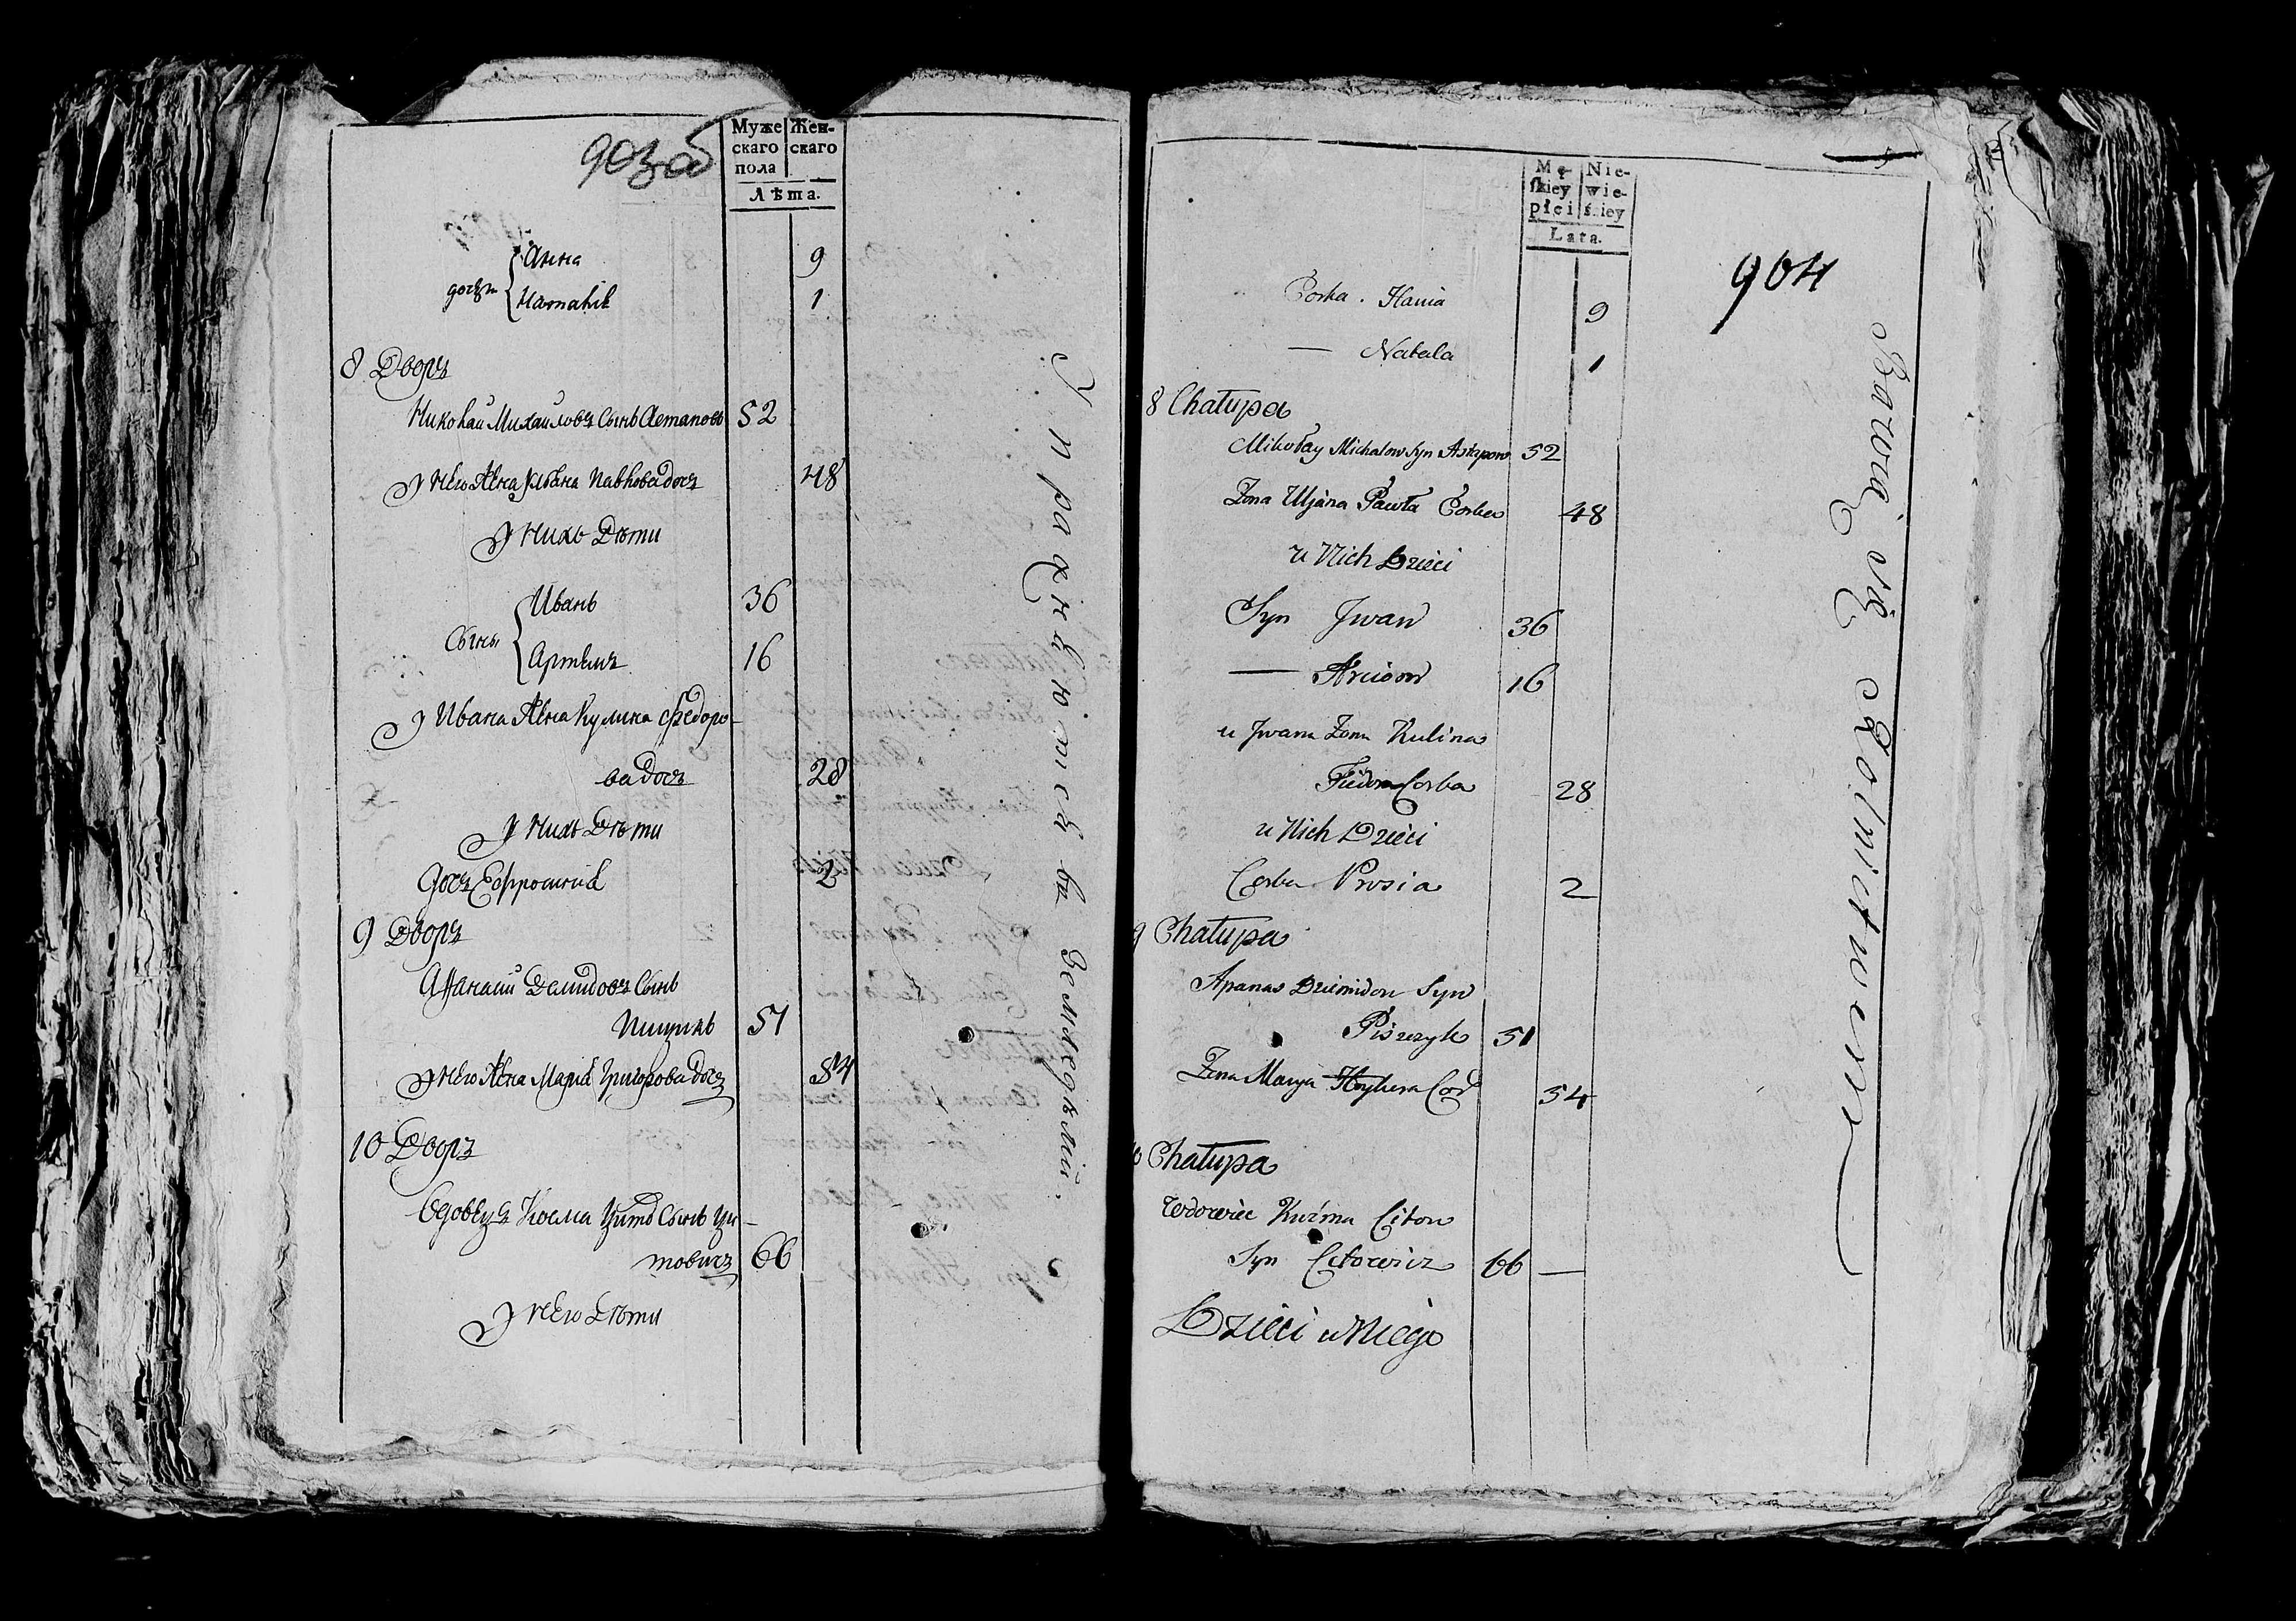 903об
Муже Жен-
скаго скаго
пола
Лѣта.
дочери Анна 9
Наталія 1
8 Дворъ
Николай Михайловъ Сынъ Астаповъ 52
У Него Жена Ульяна Павлова дочъ 48
У Нихъ Дѣти
Сыны Иванъ 36
Артемъ 16
У Ивана Жена Кулина Федоро-
ва дочъ 28
У Нихъ Дѣти
Дочъ Ефросинія 2
9 Дворъ
Афанасій Демидовъ Сынъ
Пищикъ 51
У Него Жена Марія Григорова дочъ 54
10 Дворъ
Вдовецъ Косма Титовъ Сынъ Ци-
товичъ 66
У Него Дѣти
Упражняются въ Земледѣліи.
Mę- Nie-
skiey wie-
płci ściey
Lata.
904
Corka . Hania 9
— Natala 1
8 Chałupa
Mikołay Michałow Syn Astapow 52
Żona Uljana Pawła Corka 48
u Nich Dzieci
Syn Jwan 36
— Arciom 16
u Jwana Żona Kulina
Fiedora Corka 28
u Nich Dzieci
Corka Prosia 2
9 Chałupa
Apanas Dziemidow Syn
Piszczyk 51
Żona Marya Hryhora Cor 54
10 Chałupa
Wdowiec Kuźma Citow
Syn Citowicz 66 —
Dzieci u Niego
Bawią się Rolnictwem